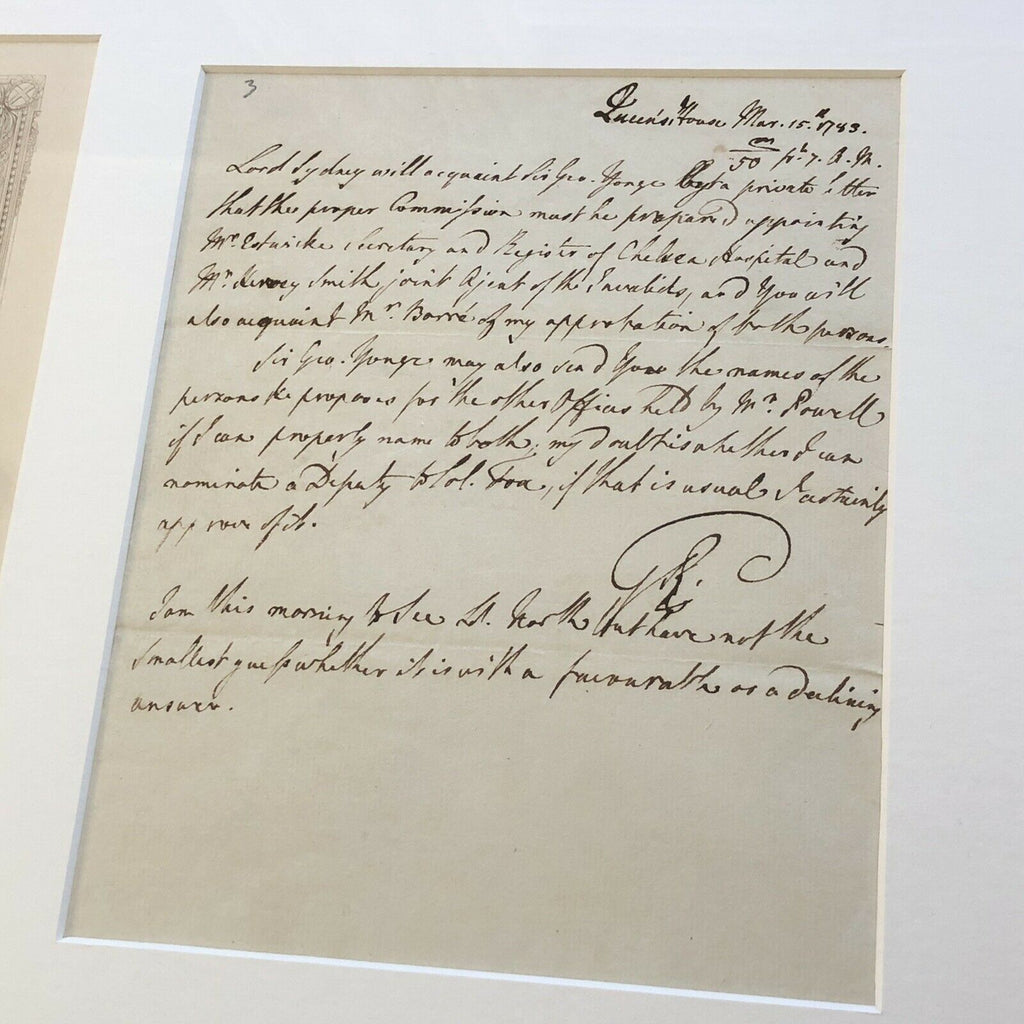 3
Queen's House Mar. 15.th 1783.
m/50 pt. 7. A.M.
Lord Sydney will acquaint Sir Geo. Yonge by a private letter
that the proper Commission must be prepared appointing
Mr. Estwicke Secretary and Register of Chelsea Hospital and
Mr. Hervey Smith joint Agent of the Invalids, and You will
also acquaint Mr. Barré of my approbation of both persons.
Sir Geo. Yonge may also send You the names of the
persons he proposes for the other Offices held by Mr. Powell
if I can properly name to both; my doubt is whether I can
nominate a Deputy to Col. Fox, if that is usual I certainly
approve of it.
GR.
I am this morning to see Ld. North but have not the
smallest guess whether it is with a favourable or a declining
answer.